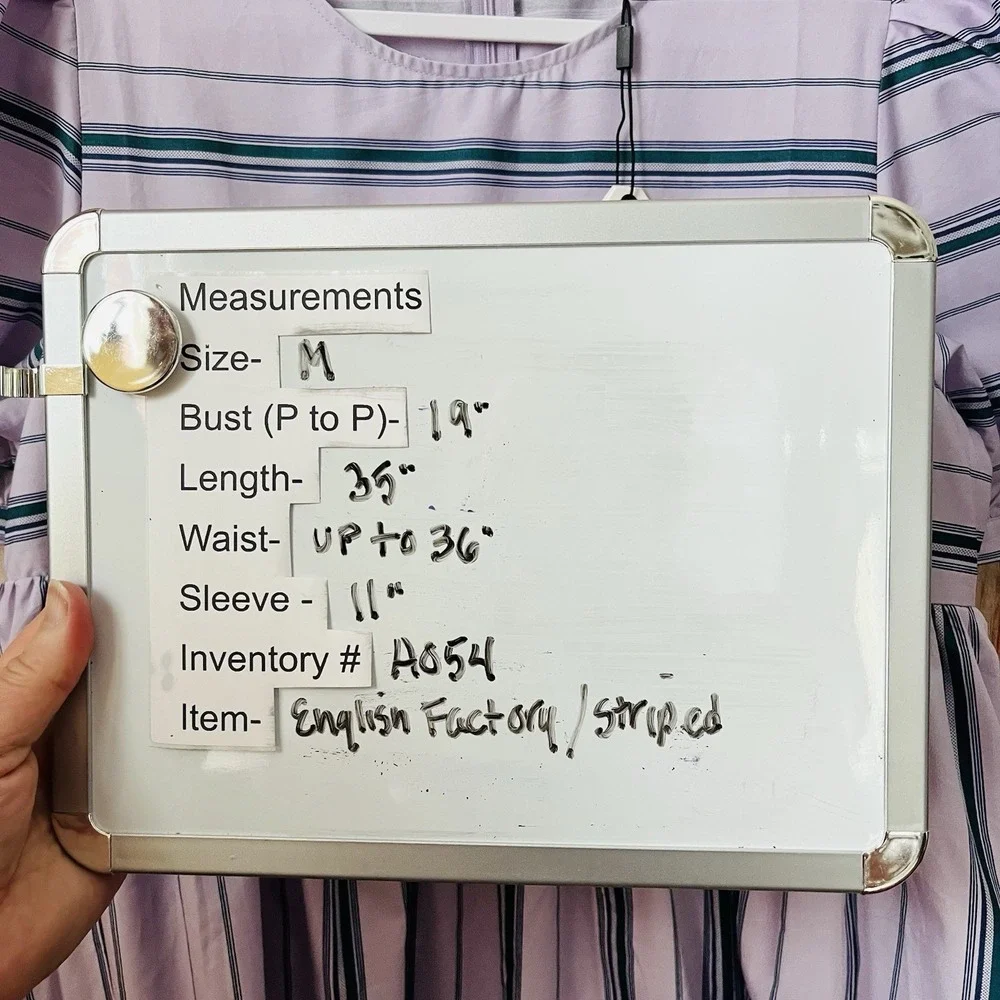 Measurements
Size- M
Bust (P to P)- 19"
Length- 35"
Waist- UP to 36"
Sleeve - 11"
Inventory # A054
Item- English Factory / Striped